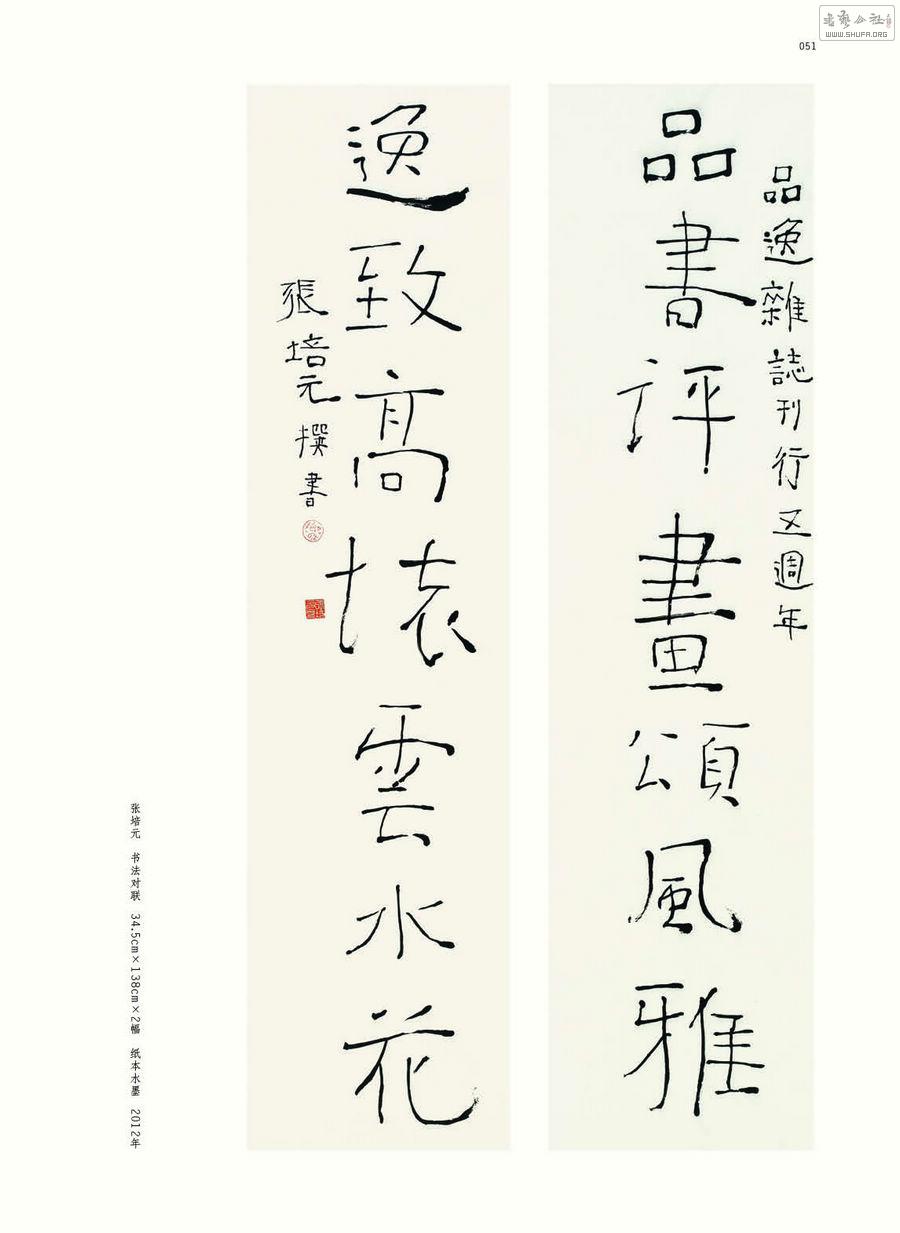 WWW.SHUFA.ORG
051
品逸雜誌刊行五週年
品書評畫頌風雅
逸致高懐雲水花
張培元撰書
张培元 书法对联 34.5cm×138cm×2幅 纸本水墨 2012年